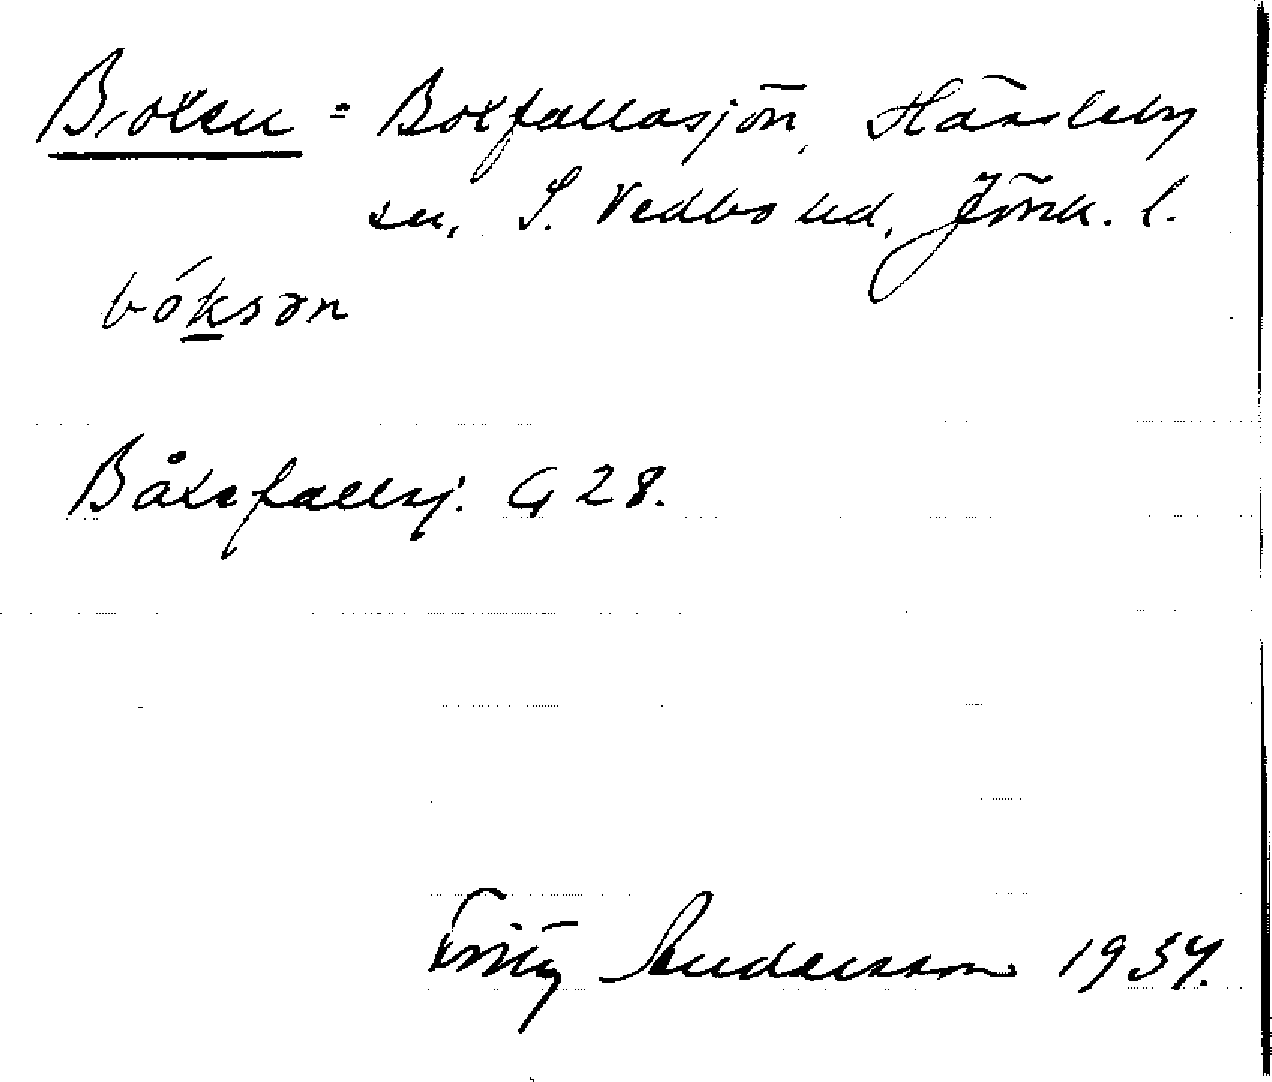 Boxen = Boxfallasjön, Hässleby
sn, S. Vedbo hd, Jönk. l.
bóksɘn
Båxefallsj. G 28.
Fritz Andersson 1934.